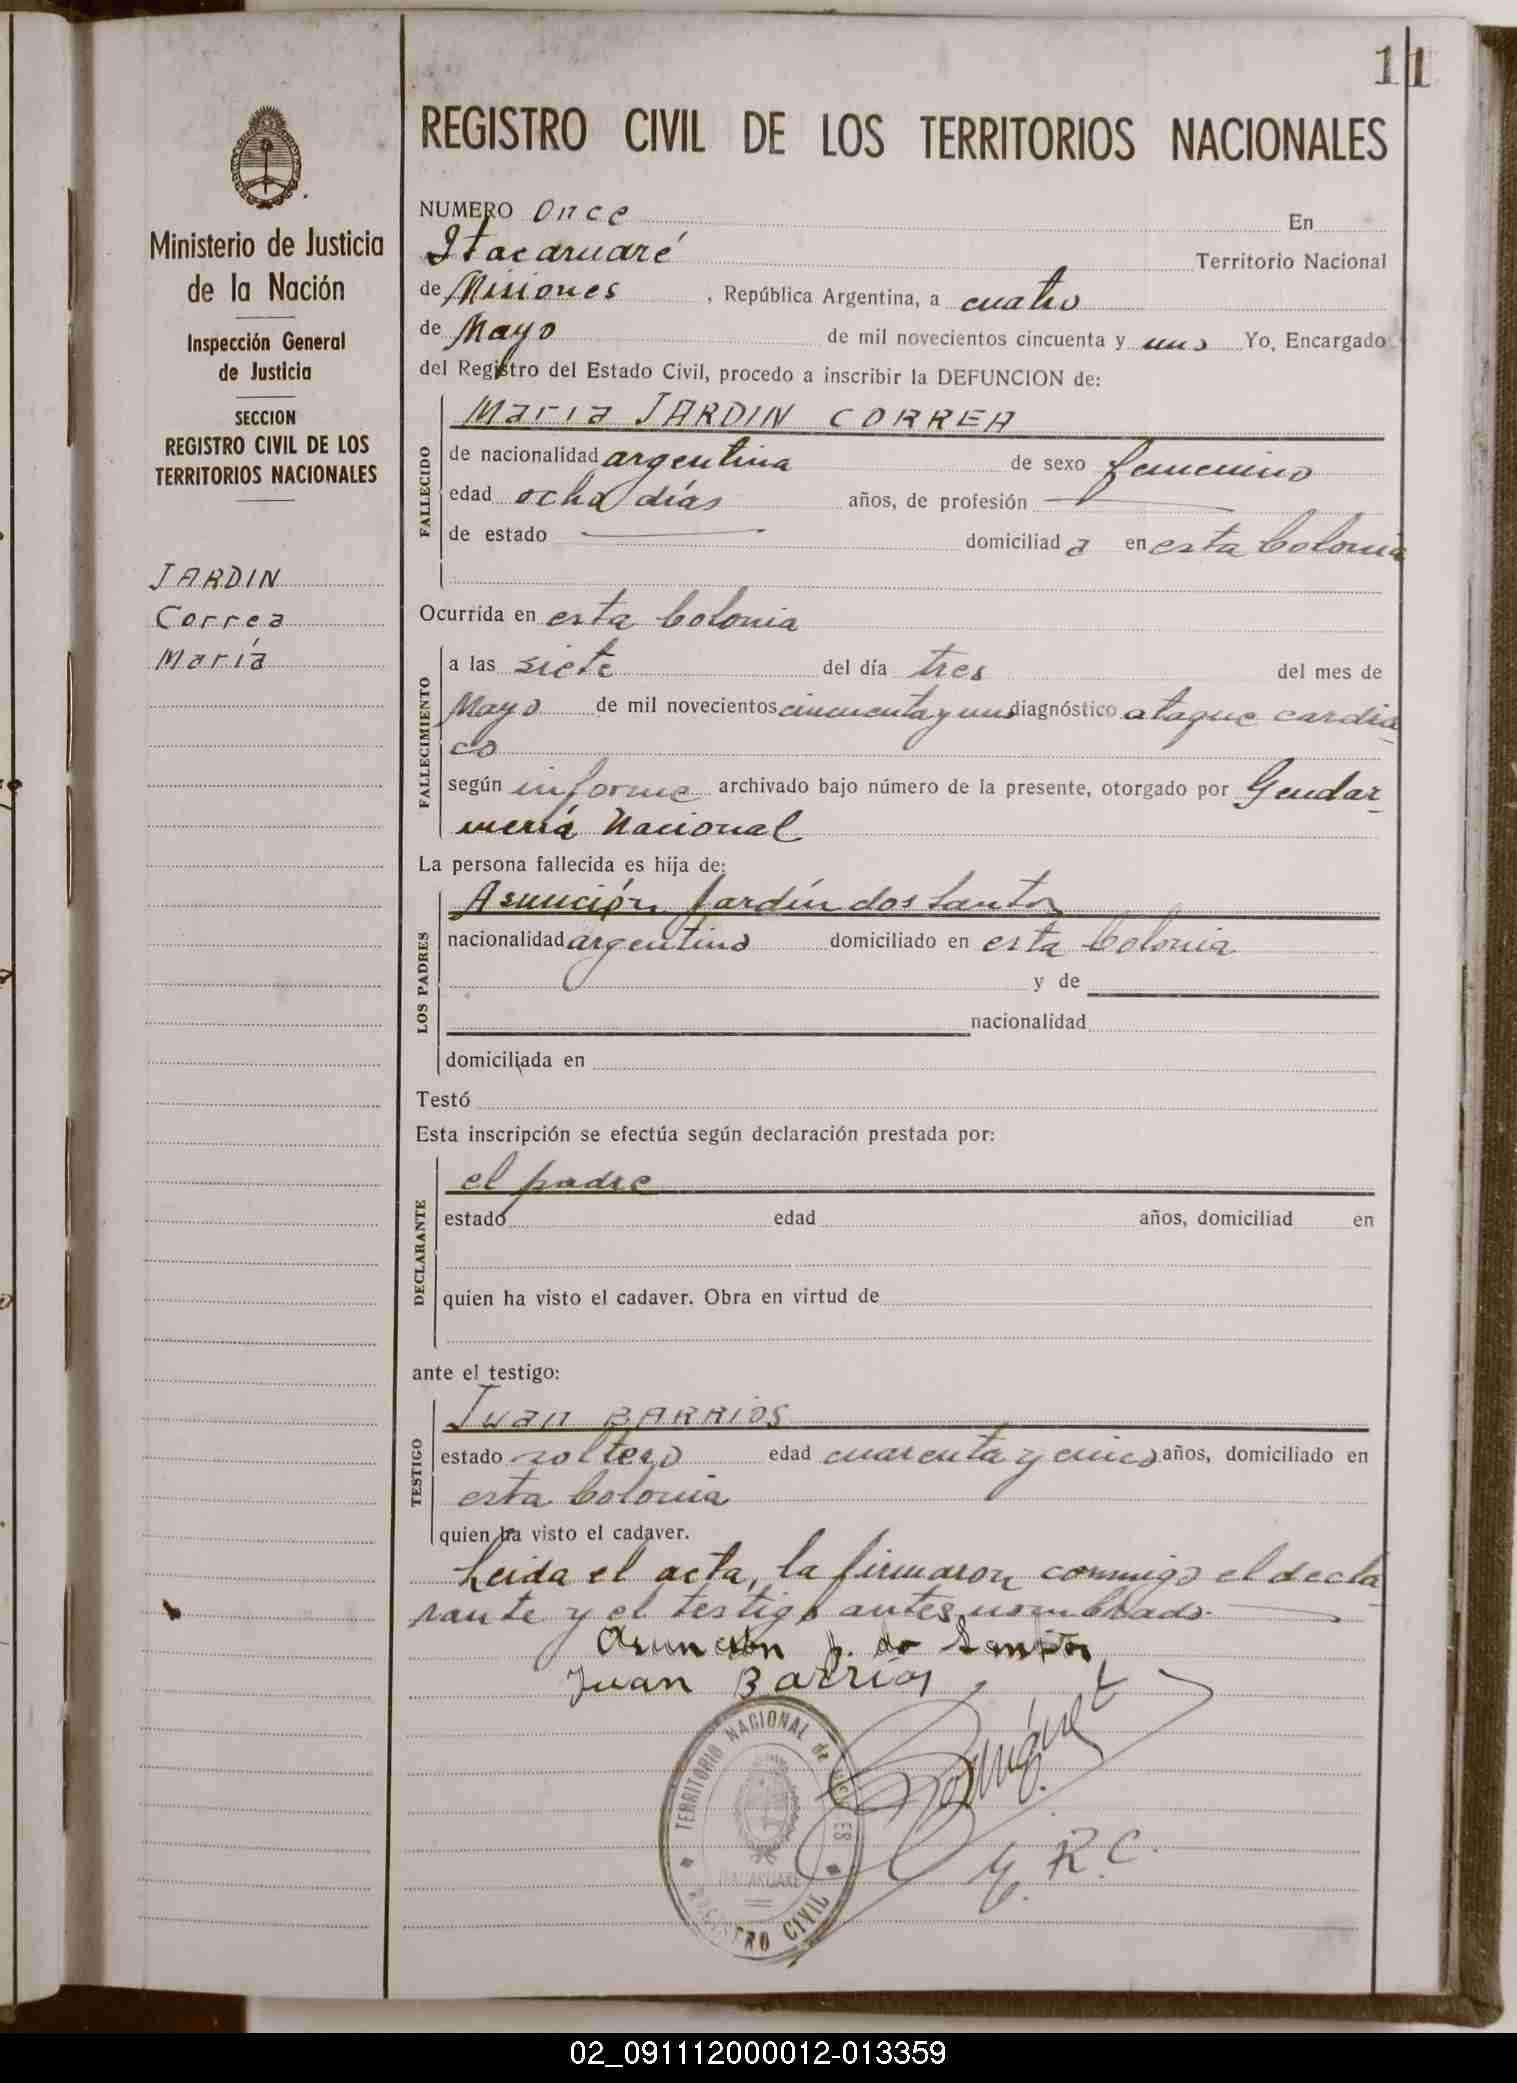 11
REGISTRO CIVIL DE LOS TERRITORIOS NACIONALES
Ministerio de Justicia
de la Nación
Inspección General
de Justicia
SECCION
REGISTRO CIVIL DE LOS
TERRITORIOS NACIONALES
JARDIN
Correa
María
NUMERO Once En
Itacaruaré Territorio Nacional
de Misiones, República Argentina, a cuatro
de Mayo de mil novecientos cincuenta y uno Yo, Encargado
del Registro del Estado Civil, procedo a inscribir la DEFUNCION de:
FALLECIDO
Maria JARDIN CORREA
de nacionalidad argentina de sexo femenino
edad ocho días años, de profesión
de estado domiciliad a en esta Colonia
Ocurrida en esta Colonia
FALLECIMIENTO
a las siete del día tres del mes de
Mayo de mil novecientos cincuenta y uno diagnóstico ataque cardía-
co
según informe archivado bajo número de la presente, otorgado por Gendar-
mería Nacional
La persona fallecida es hija de:
LOS PADRES
Asunción Jardín dos Santos
nacionalidad argentino domiciliado en esta Colonia
y de
nacionalidad
domiciliada en
Testó
Esta inscripción se efectúa según declaración prestada por:
DECLARANTE
el padre
estado edad años, domiciliad en
quien ha visto el cadaver. Obra en virtud de
ante el testigo:
TESTIGO
Juan BARRIOS
estado soltero edad cuarenta y cinco años, domiciliado en
esta Colonia
quien ha visto el cadaver.
Leida el acta, la firmaron conmigo el decla-
rante y el testigo antes nombrado.
Asuncion J. do Santos
Juan Barrios
TERRITORIO NACIONAL de MISIONES
ITACARUARE
REGISTRO CIVIL
E. R. C.
02_091112000012-013359